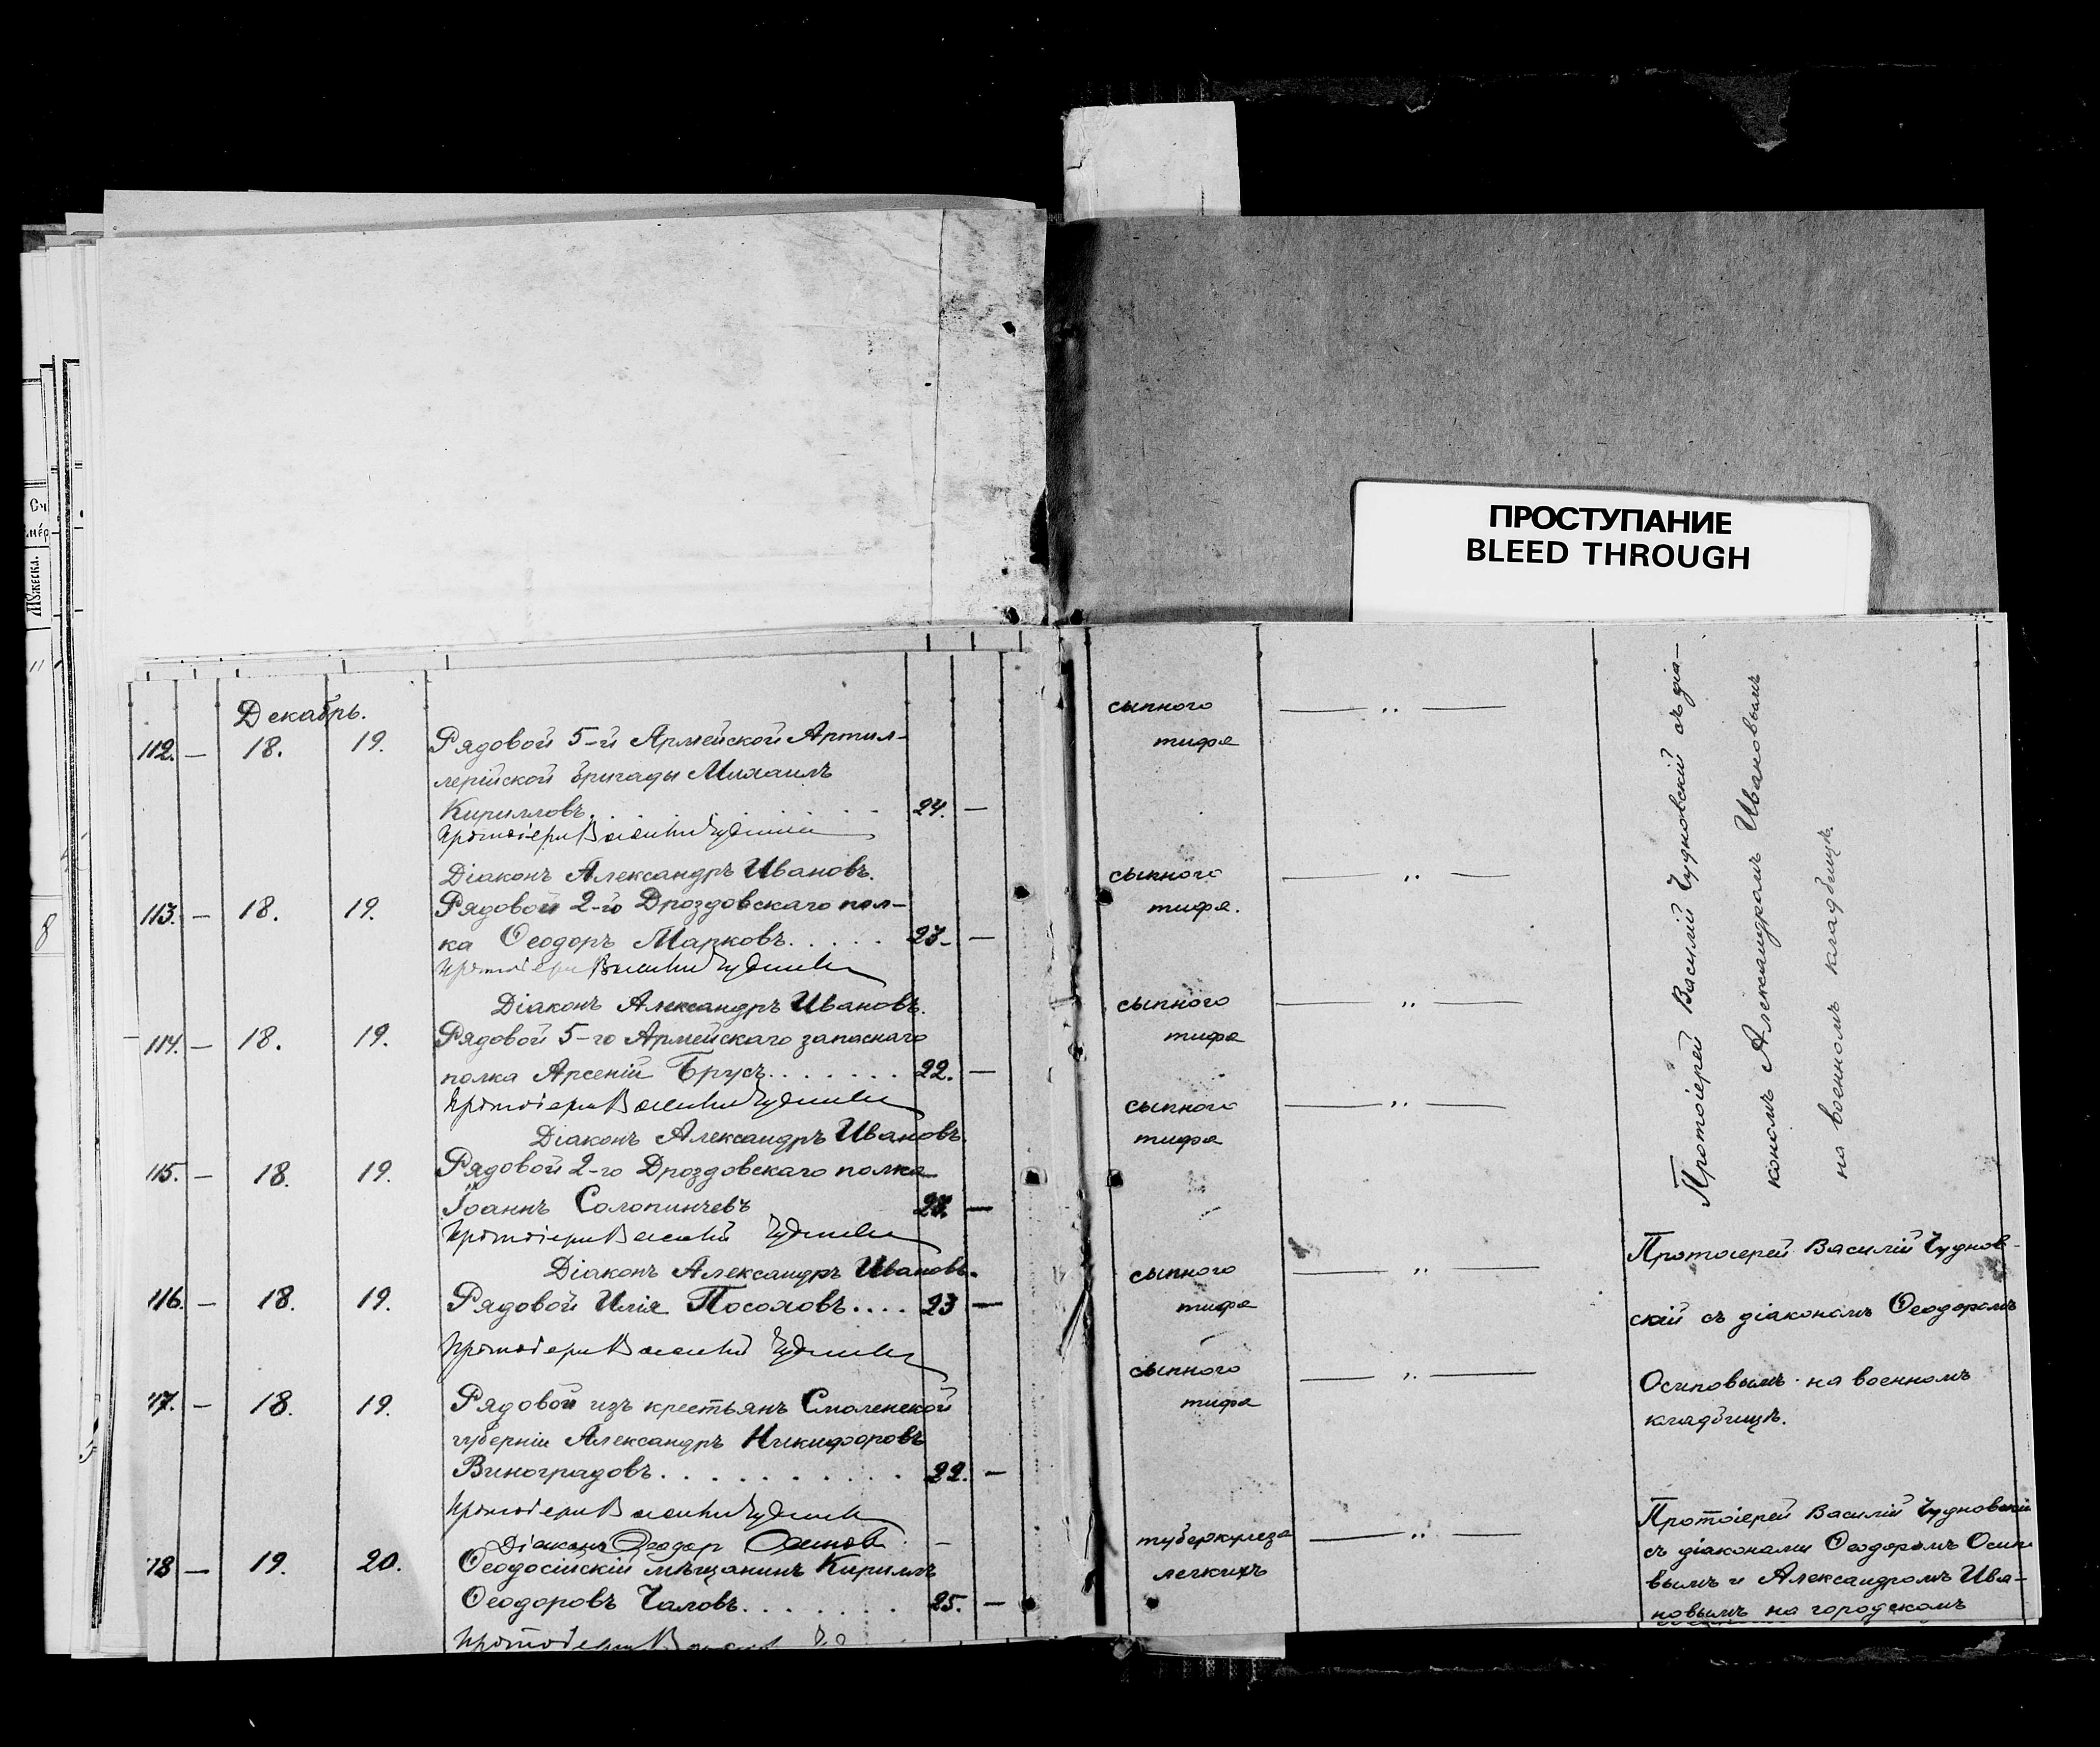 Сч
мер
Мужеска.
ПРОСТУПАНИЕ
BLEED THROUGH
Декабрь.
112. — 18. 19. Рядовой 5-й Армейской Артил-
лерійской бригады Михаилъ
Кирилловъ. 24. —
Протоіерей Василій Чудновскій
Діаконъ Александръ Ивановъ.
113. — 18. 19. Рядовой 2-го Дроздовскаго пол-
ка Ѳеодоръ Марковъ. 27. —
Протоіерей Василій Чудновскій
Діаконъ Александръ Ивановъ.
114. — 18. 19. Рядовой 5-го Армейскаго запаснаго
полка Арсеній Брусъ. 22. —
Протоіерей Василій Чудновскій
Діаконъ Александръ Ивановъ.
115. — 18. 19. Рядовой 2-го Дроздовскаго полка
Іоаннъ Солопинчевъ —
Протоіерей Василій Чудновскій
Діаконъ Александръ Ивановъ.
116. — 18. 19. Рядовой Илія Посоховъ.... 23 —
Протоіерей Василій Чудновскій
117. — 18. 19. Рядовой изъ крестьянъ Смоленской
губерніи Александръ Никифоровъ
Виноградовъ. 22. —
Протоіерей Василій Чудновскій
Діаконъ Ѳеодор Осипов
118 — 19. 20. Ѳеодосійскій мѣщанинъ Кириллъ
Ѳеодоровъ Чаловъ. 25. —
Протоіерей
сыпного — „ —
тифа
сыпного — „ —
тифа.
сыпного — „ —
тифа
сыпного — „ —
тифа
сыпного — „ —
тифа
сыпного — „ —
тифа
туберкулеза — „ —
легкихъ
Протоіерей Василій Чудновскій съ діа-
кономъ Александромъ Ивановымъ
на военномъ кладбищѣ.
Протоіерей Василій Чуднов-
скій съ діакономъ Ѳеодоромъ
Осиповымъ на военномъ
кладбищѣ.
Протоіерей Василій Чудновскій
съ діаконами Ѳеодоромъ Осипо
вымъ и Александромъ Ива-
новымъ на городскомъ